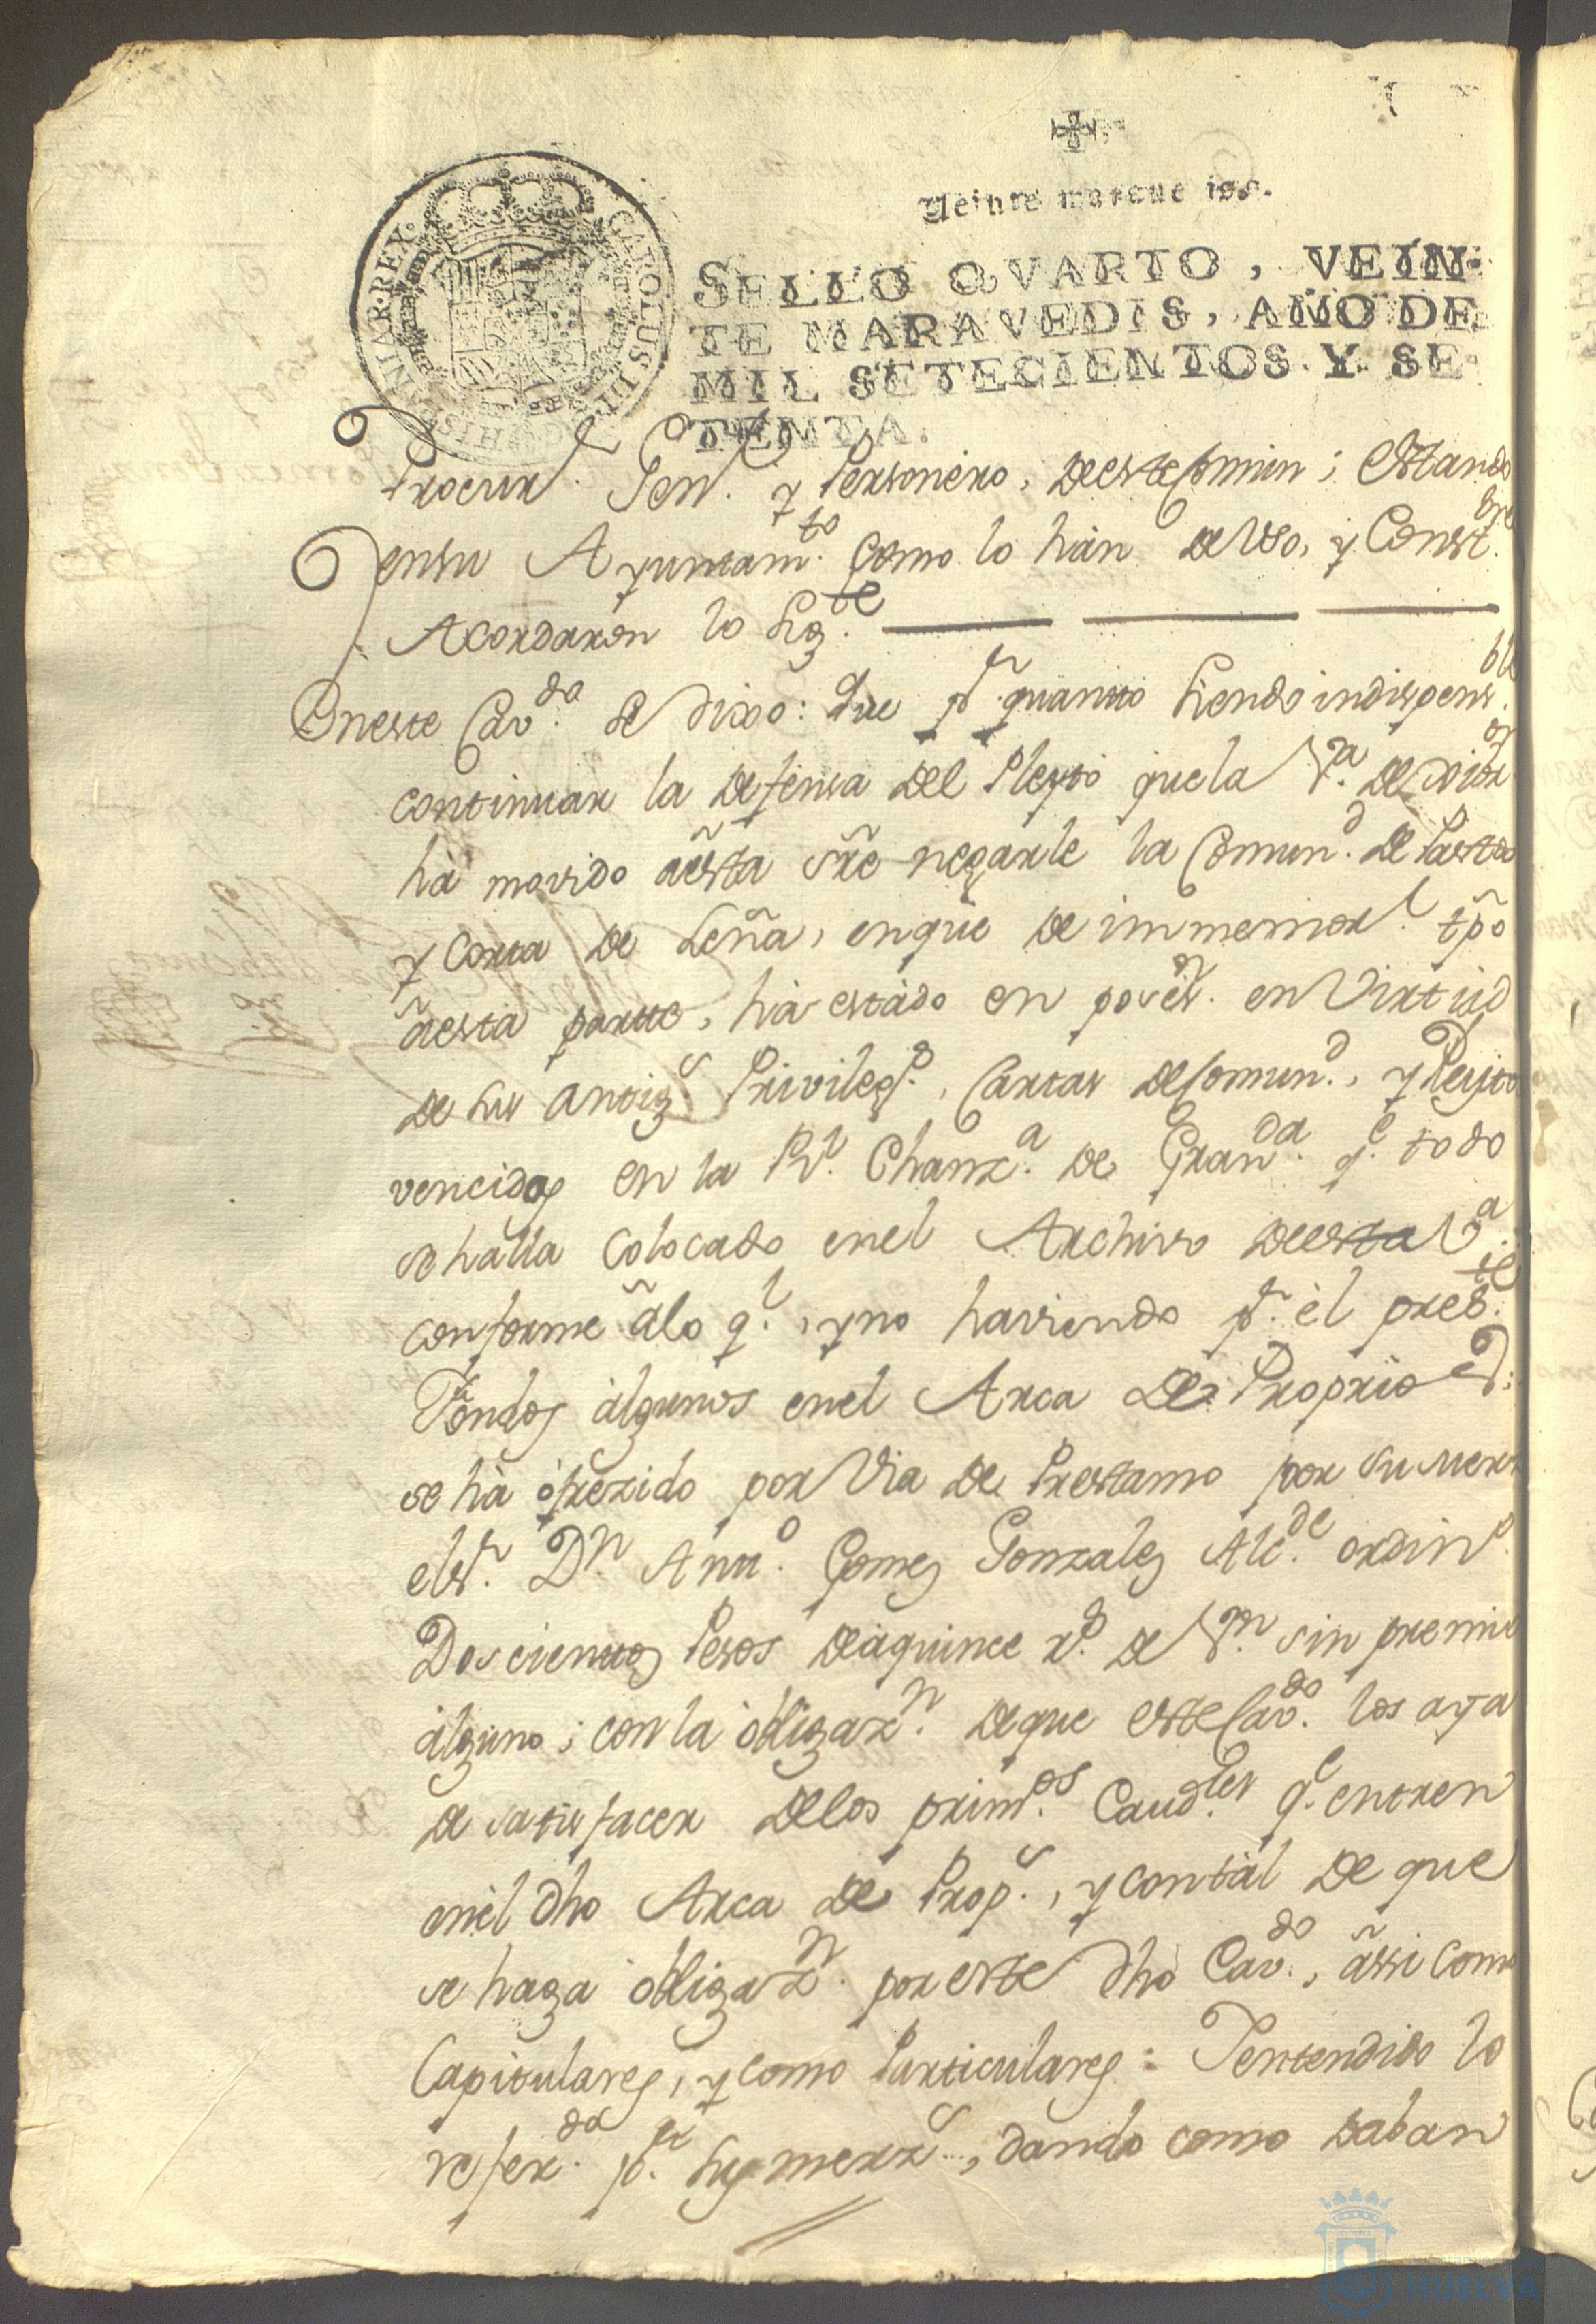 Veinte marauedis.
SELLO QVARTO, VEIN-
TE MARAVEDIS, AÑO DE
MIL SETECIENTOS Y SE-
TENTA.
CAROLUS III D G HISPANIAR REX
Procur.r Gen.l y Personero, de este Comun; Estando
en su Ayuntam.to como lo hàn de Uso, y Const.bre
Acordaron lo Sig.te
En este Cav.do se dixo: Que p.r quanto siendo indispens.ble
continuar la defensa del Pleyto que la V.a de
hà movido à esta sre negarle la Comun.d de Pastos
y Corta de Leña, en que de immemor.l tpo
à esta parte, hà estàdo en poses.on en Virtud
de sus antig.s Privileg.s, Cartas de Comun.d, y Pleytos
vencidos en la R.l Chanz.a de Gran.da q.e todo
se halla colocado en el Archivo de esta V.a
conforme à lo q.l, y no haviendo p.r èl pres.te
Fondos àlgunos en el Arca de Proprios;
se hà òfrezido por Via de Prestamo por su merz.d
el S.r D.n Ant.o Gomez Gonzalez Alc.de ordin.o
Doscientos Pesos de à quince r.s de V.n sin premio
àlguno; con la òbligaz.n de que este Cav.do los aya
de satisfacer de los prim.os Caud.les q.e entren
en èl dho Arca de Prop.s, y con tàl de que
se haga òbligaz.n por este dho Cav.do, àssi como
Capitulares, y como Particulares: Y entendido lo
refer.do p.r sus merz.s, dando como daban
HUELVA